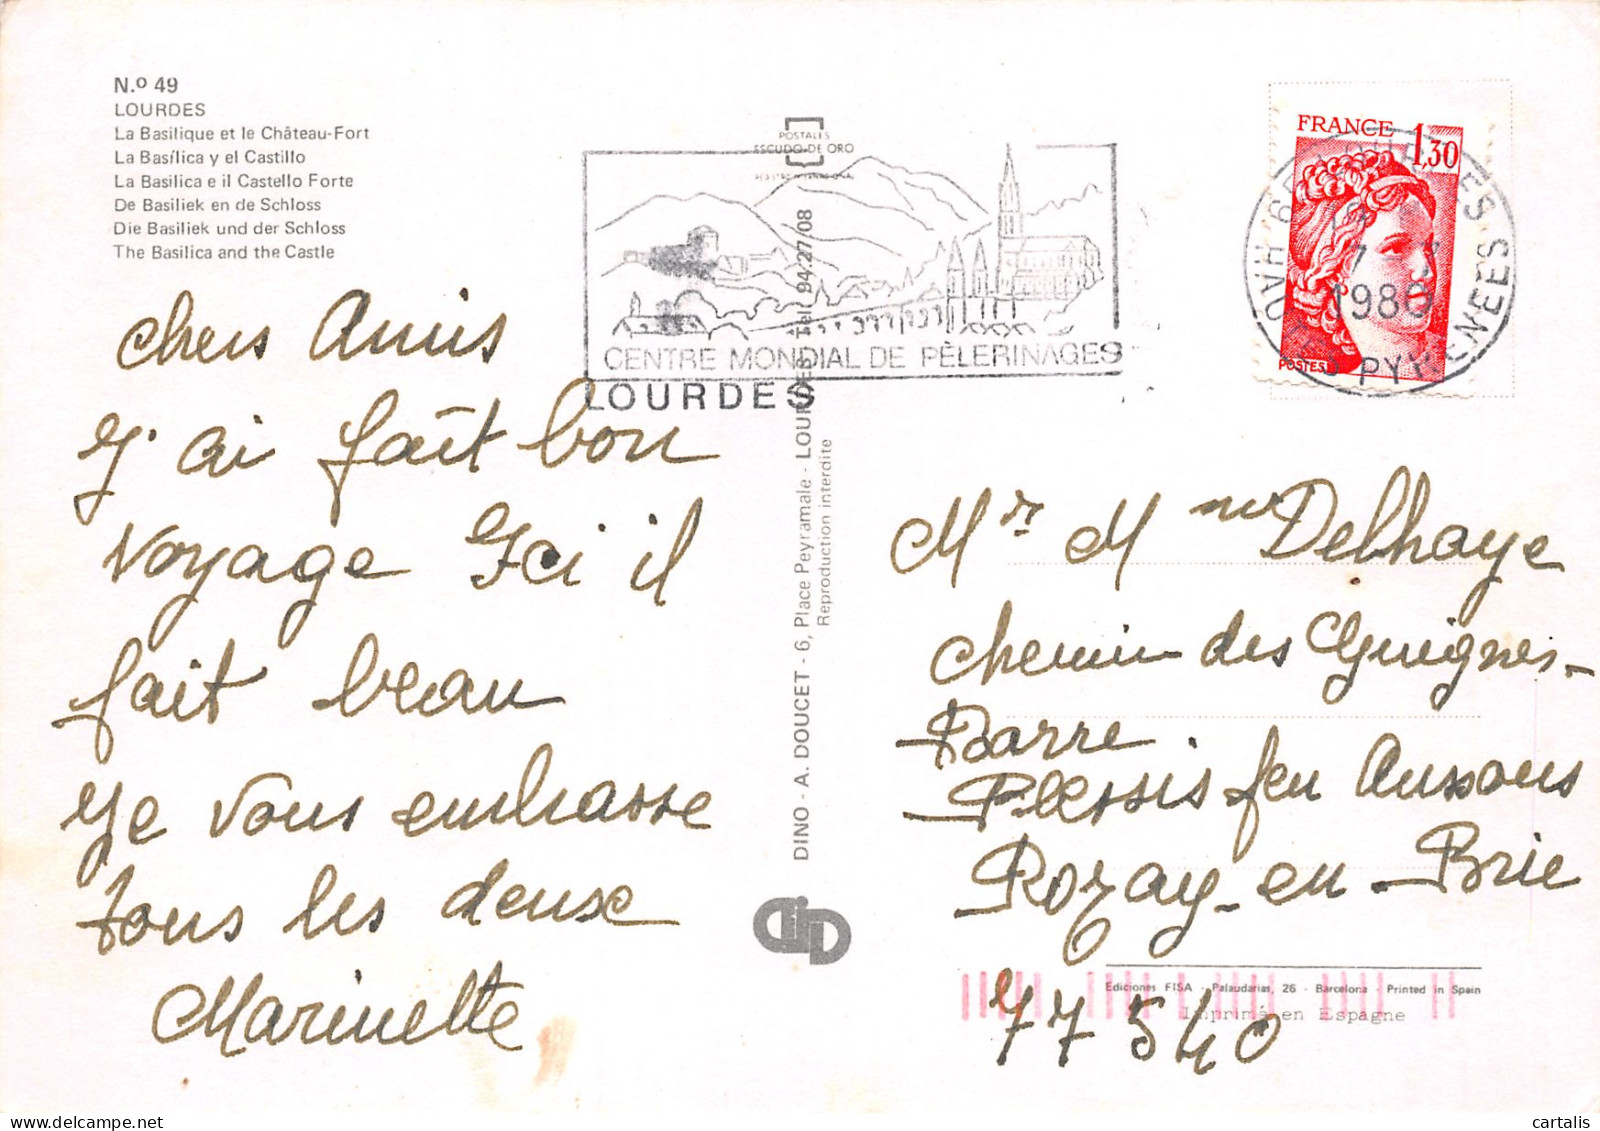 N.º 49
LOURDES
La Basilique et le Château-Fort
La Basílica y el Castillo
La Basilica e il Castello Forte
De Basiliek en de Schloss
Die Basiliek und der Schloss
The Basilica and the Castle
POSTALES
ESCUDO DE ORO
CENTRE MONDIAL DE PÈLERINAGES
LOURDES
FRANCE 1,30
POSTES
1980
HAUTES PYRENEES
chers Amis
J'ai fait bon
voyage Ici il
fait beau
Je vous embrasse
tous les deux
Marinette
DINO - A. DOUCET - 6, Place Peyramale - LOURDES - Tél. 94.27.08
Reproduction interdite
Mr Mme Delhaye
chemin des Guignes-
Barre
Plessis feu Aussous
Rozay-en-Brie
77540
Ediciones FISA - Palaudarias, 26 - Barcelona - Printed in Spain
Imprimé en Espagne
cartalis